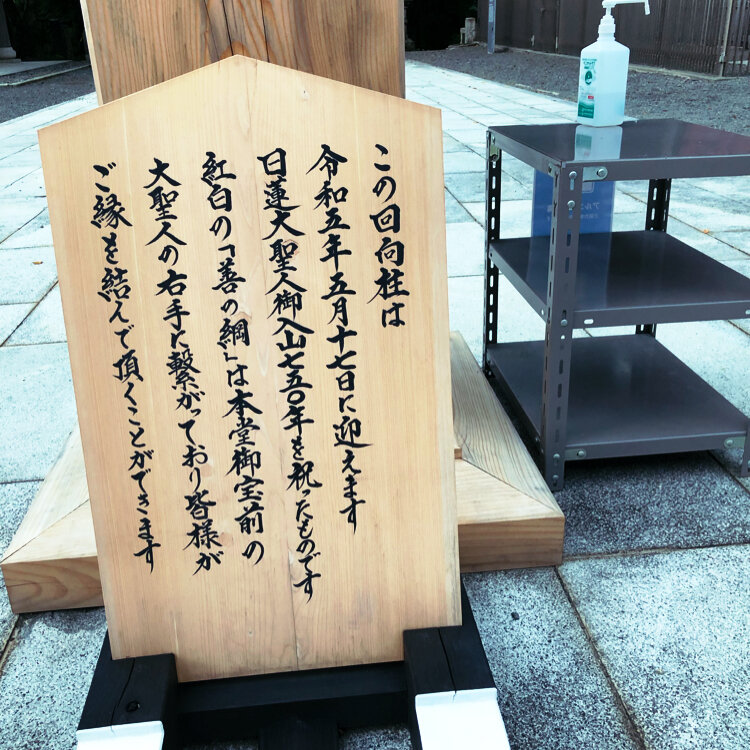 この回向柱は
令和五年五月十七日に迎えます
日蓮大聖人御入山七五〇年を祝ったものです
紅白の「善の綱」は本堂御宝前の
大聖人の右手に繋がっており皆様が
ご縁を結んで頂くことができます